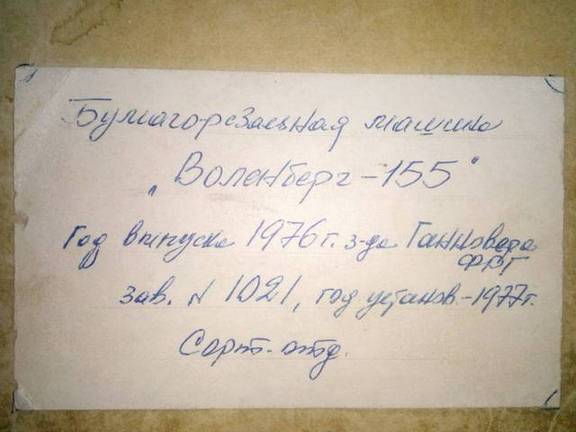 Бумагорезальная машина
„Воленберг-155"
Год выпуска 1976 г. з-да Ганновера
ФРГ
зав. № 1021, год установ.-1977г.
Сорт. отд.